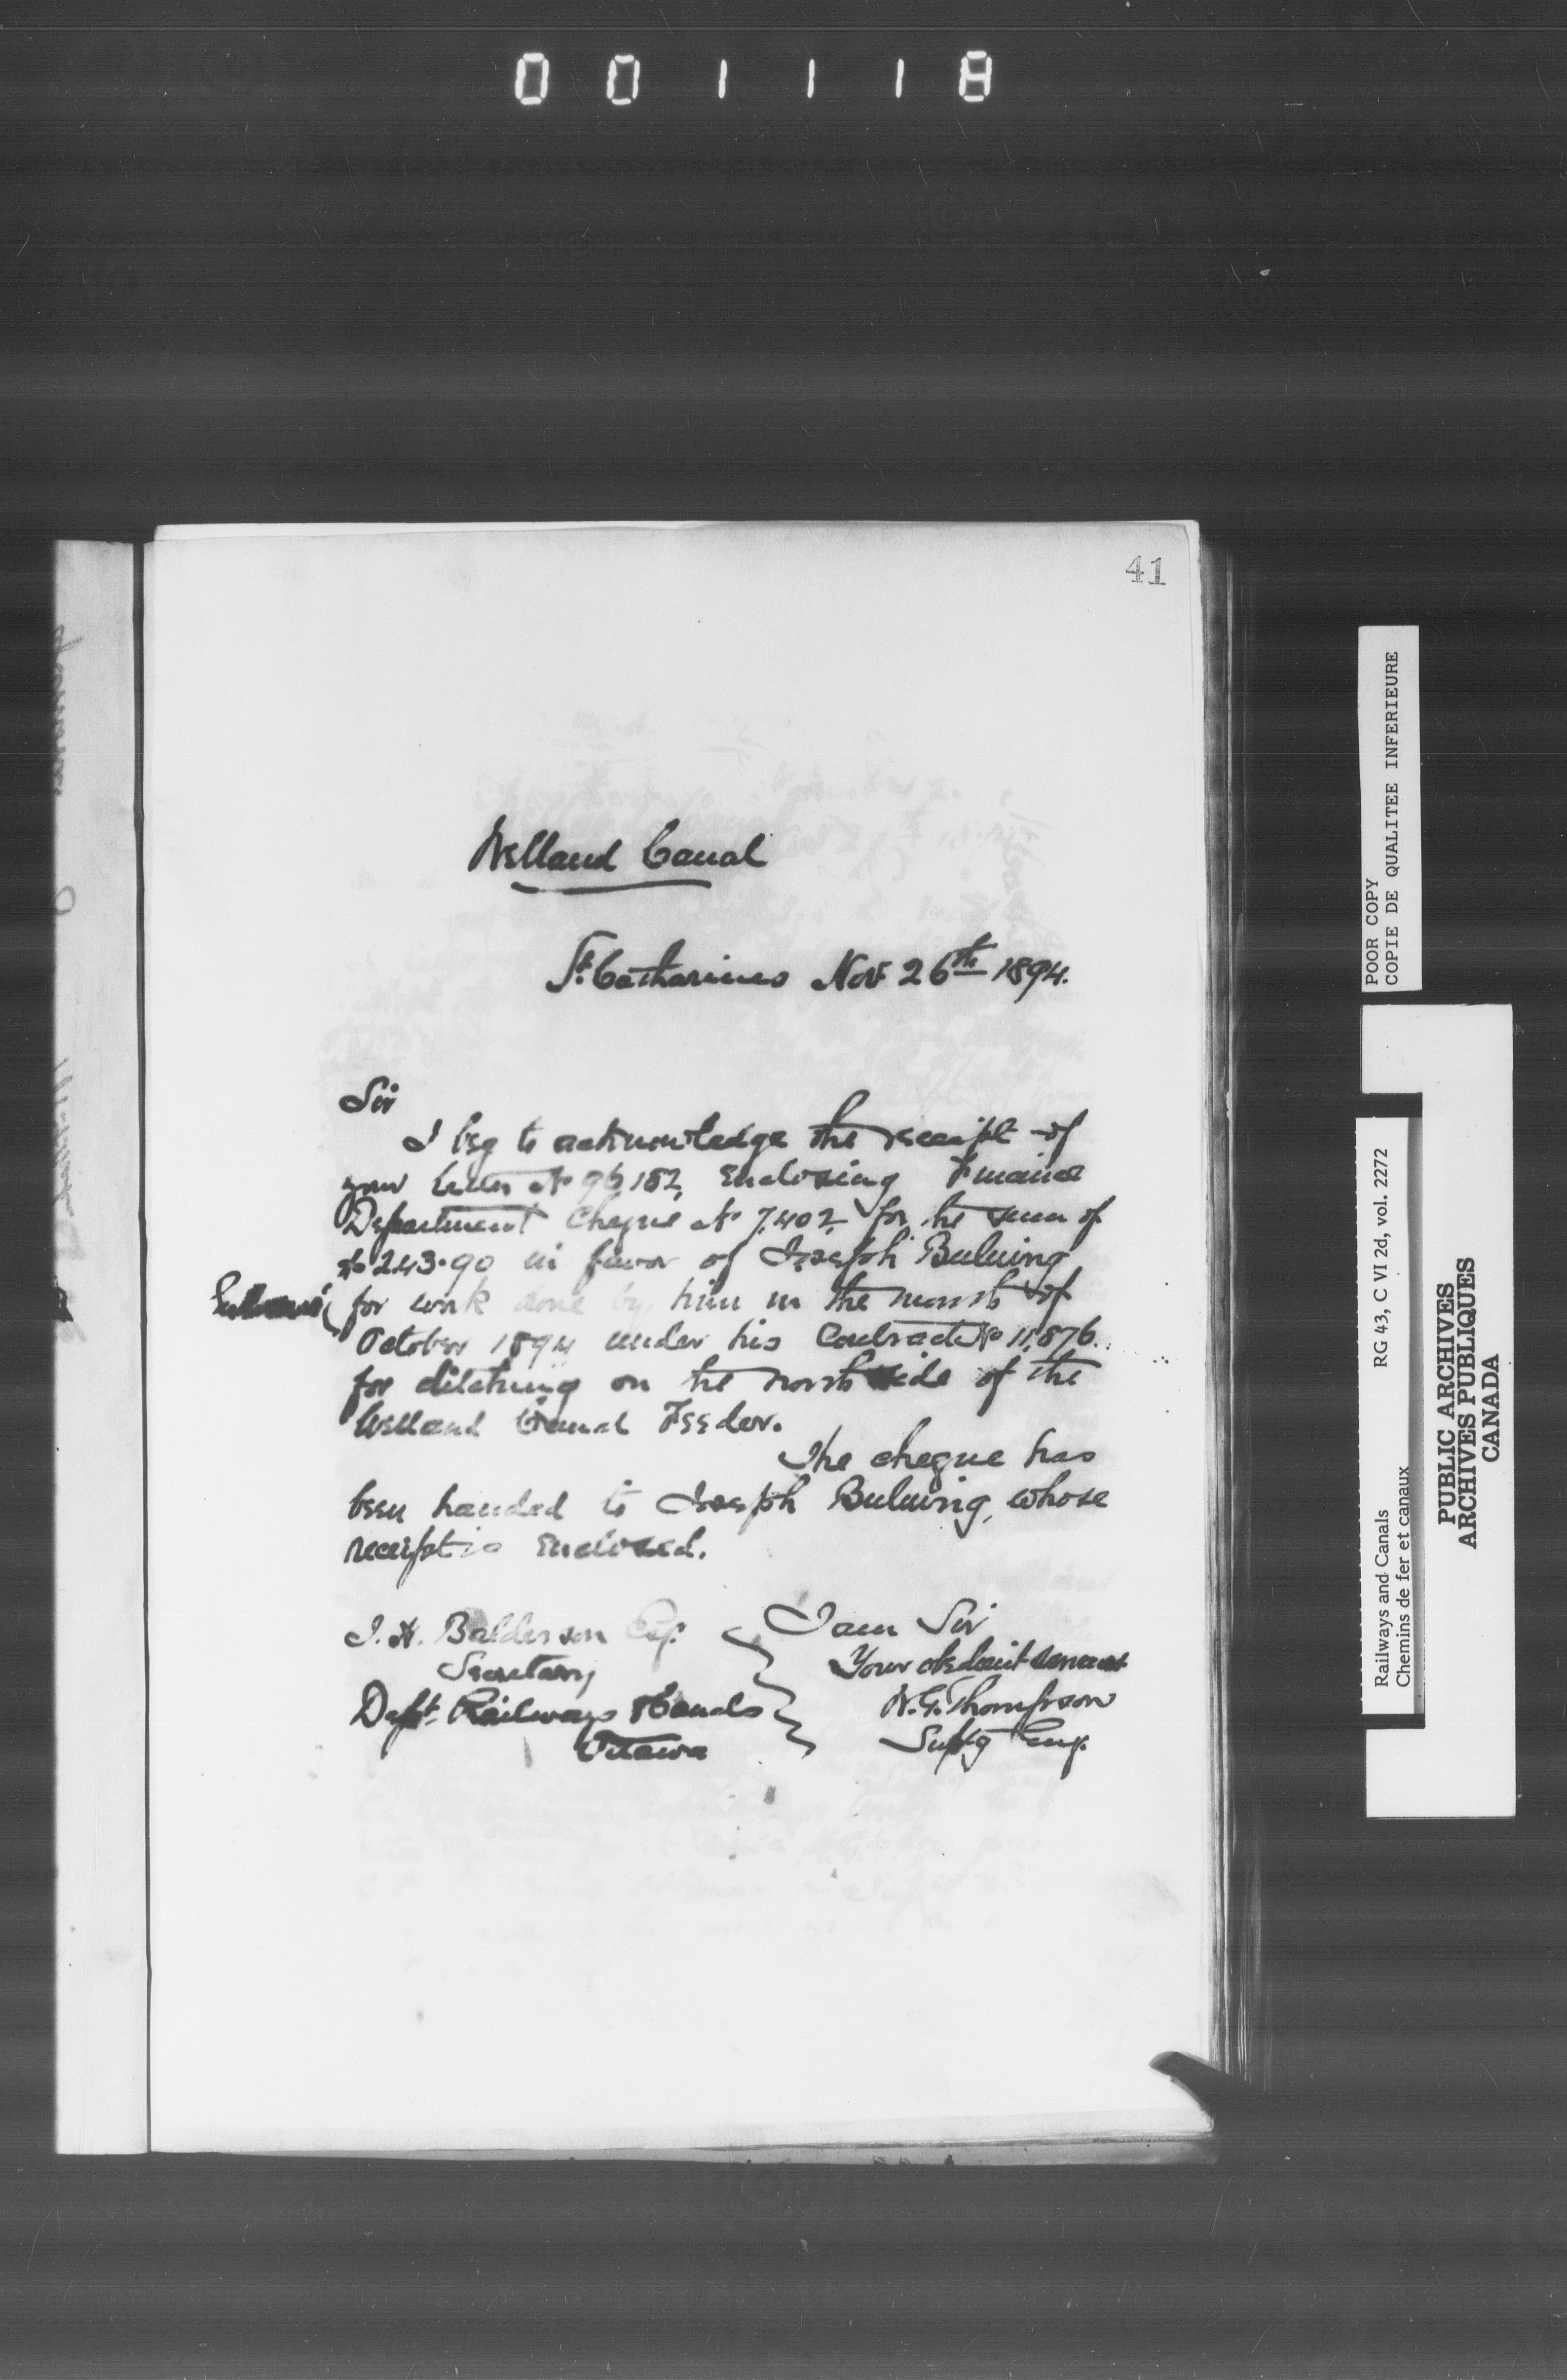 001118
41
Welland Canal
St. Catharines Nov 26th 1894.
Sir
I beg to acknowledge the receipt of
your letter No 96,182, Enclosing Finance
Department Cheque No 7,402 for the sum of
$243.90 in favor of Joseph
for work done by him in the month of
October 1894 under his Contract No 11,876.
for ditching on the north side of the
Welland Canal Feeder.
The cheque has
been handed to Joseph whose
receipt is Enclosed.
J. H. Balderson Esq.
Secretary
Dept. Railways & Canals
Ottawa
I am Sir
Your obedient servant
W. G. Thompson
Suptg Eng.
POOR COPY
COPIE DE QUALITEE INFERIEURE
RG 43, C VI 2d, vol. 2272
Railways and Canals
Chemins de fer et canaux
PUBLIC ARCHIVES
ARCHIVES PUBLIQUES
CANADA